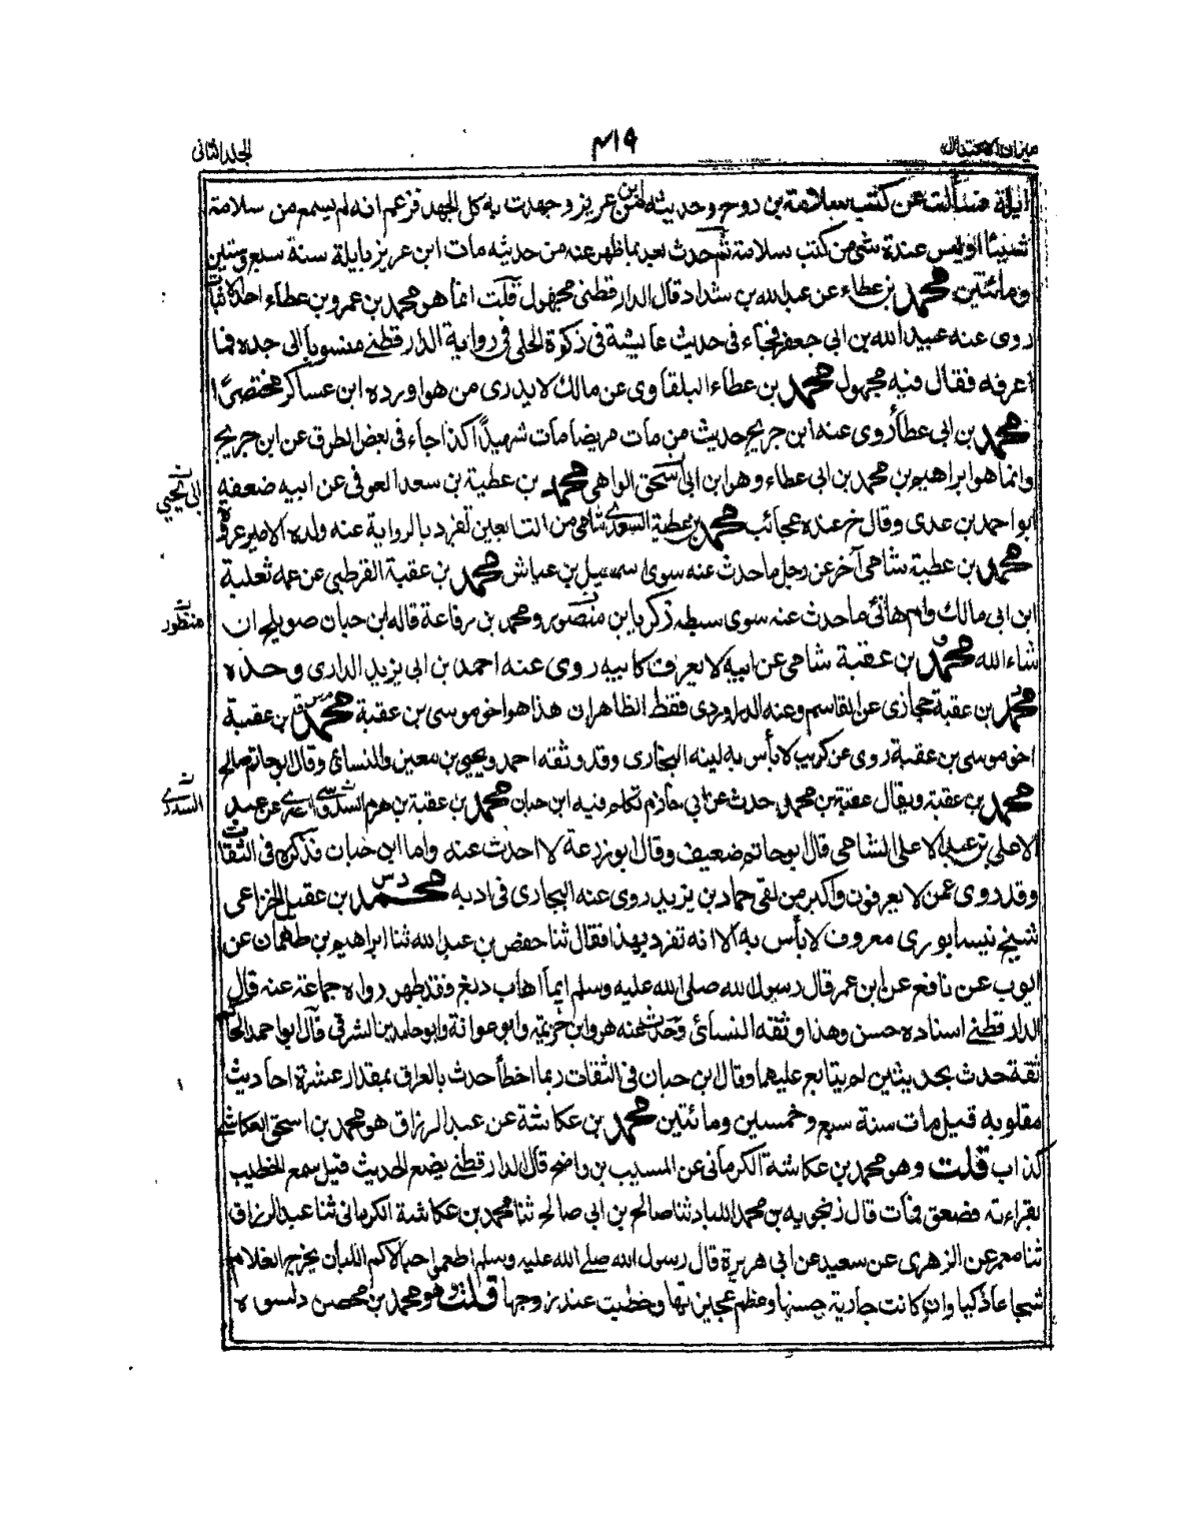 ميزان الاعتدال
٤١٩
الجلد الثاني
ايلة فسألت عن كتب سلامة بن روح وحديثه من ابن عزيز وجهدت به كل الجهد فزعم انه لم يسمع من سلامة
شيئا او ليس عنده شئ من كتب سلامة ثم حدث بعد بما ظهر عنه من حديثه مات ابن عزيز بايلة سنة سبع وستين
ومائتين محمد بن عطاء عن عبد الله بن شداد قال الدارقطني مجهول قلت انما هو محمد بن عمرو بن عطاء احد الاثبات
روى عنه عبيد الله بن ابي جعفر فجاء في حديث عايشة في زكوة الحلي في رواية الدارقطني منسوبا الى جده فما
اعرفه فقال فيه مجهول محمد بن عطاء البلقاوي عن مالك لا يدرى من هو اورده ابن عساكر مختصرًا
محمد بن ابي عطاء روى عنه ابن جريج حديث من مات مريضا مات شهيدًا كذا جاء في بعض الطرق عن ابن جريج
وانما هو ابراهيم بن محمد بن ابي عطاء وهو ابن ابي اسحق الواهي محمد بن عطية بن سعد العوفي عن ابيه ضعفه
ابي يحيى
ابو احمد بن عدي وقال خ عنده عجائب محمد بن عطية السعدي شامي من التابعين تفرد بالرواية عنه ولده الامير عروة
محمد بن عطية شامي آخر عن رجل ما حدث عنه سوى اسمعيل بن عياش محمد بن عقبة القرظي عن عمه ثعلبة
ابن ابي مالك وام هانئ ما حدث عنه سوى سبطه زكريا بن منصور ومحمد بن رفاعة قاله ابن حبان صويلح ان
منظور
شاء الله محمد بن عقبة شامي عن ابيه لا يعرف كابيه روى عنه احمد بن ابي يزيد الداري وحده
محمد بن عقبة حجازي عن القاسم وعنه الدراوردي فقط الظاهر ان هذا هو اخو موسى بن عقبة محمد بن عقبة
اخو موسى بن عقبة روى عن كريب لا بأس به لينه البخاري وقد وثقه احمد ويحيى بن معين والنسائي وقال ابو حاتم صالح
محمد بن عقبة ويقال عقبة بن محمد حدث عن ابي حازم تكلم فيه ابن حبان محمد بن عقبة بن هرم السدوسي عن عبد
السدوسي
الاعلى بن عبد الاعلى الشامي قال ابو حاتم ضعيف وقال ابو زرعة لا احدث عنه واما ابن حبان فذكره في الثقات
وقد روى عمن لا يعرفون واكبر من لقي حماد بن يزيد روى عنه البخاري في ادبه محمد بن عقيل الخزاعي
شيخ نيسابوري معروف لا بأس به الا انه تفرد بهذا فقال ثنا حفص بن عبد الله ثنا ابراهيم بن طهمان عن
ايوب عن نافع عن ابن عمر قال رسول الله صلى الله عليه وسلم ايما اهاب دبغ فقد طهر رواه جماعة عنه قال
الدارقطني اسناده حسن وهذا وثقه النسائي وحدث عنه هو وابن خزيمة وابو عوانة وابو حامد بن الشرقي قال ابو احمد الحاكم
ثقة حدث بحديثين لم يتابع عليهما وقال ابن حبان في الثقات ربما اخطأ حدث بالعراق بمقدار عشرة احاديث
مقلوبة قيل مات سنة سبع وخمسين ومائتين محمد بن عكاشة عن عبد الرزاق هو محمد بن اسحق العكاشي
كذاب قلت وهو محمد بن عكاشة الكرماني عن المسيب بن واضح قال الدارقطني يضع الحديث قيل سمع الخطيب
بقراءته فصعق فمات قال زنجويه بن محمد اللباد ثنا صالح بن ابي صالح ثنا محمد بن عكاشة الكرماني ثنا عبد الرزاق
ثنا معمر عن الزهري عن سعيد عن ابي هريرة قال رسول الله صلى الله عليه وسلم اطعموا حبالاكم اللبان يخرج الغلام
شجاعا ذكيا وان كانت جارية حسنها وعظم عجيزتها وخطيت عند زوجها قلت هو محمد بن محصن دلسوه